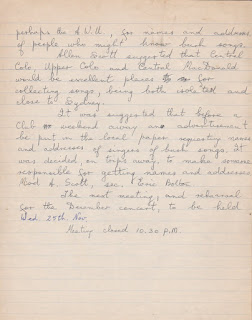 perhaps the A.W.U., for names and addresses
of people who might know bush songs.
Allan Scott suggested that Central
Colo, Upper Colo and Central MacDonald
would be excellent places to for
collecting songs, being both isolated and
close to Sydney.
It was suggested that before a
Club weekend away an advertisement
be put in the local paper requesting names
and addresses of singers of bush songs. It
was decided on trips away, to make someone
responsible for getting names and addresses.
Mov'd A. Scott, sec. Eric Bolton
The next meeting, and rehearsal
for the December concert, to be held
Wed. 25th Nov.
Meeting closed 10.30 P.M.